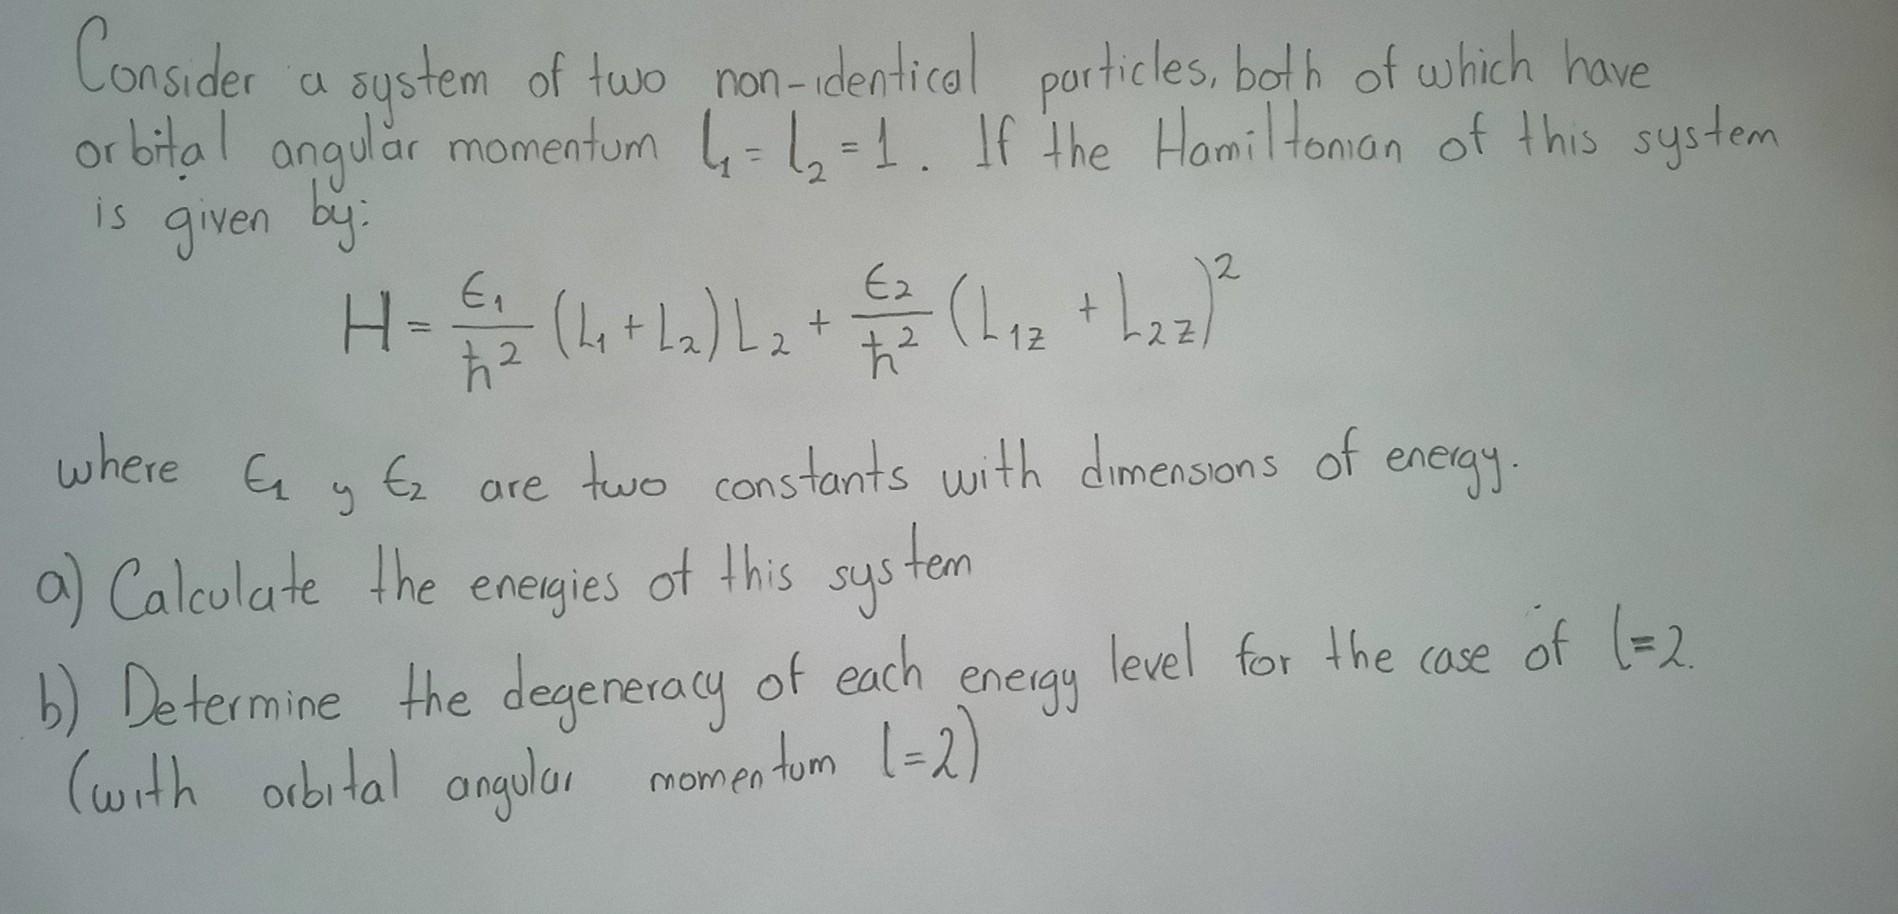 Consider a system of two non-identical particles, both of which have
orbital angular momentum l₁ = l₂ = 1. If the Hamiltonian of this system
is given by:
H = ϵ₁/ħ² (L₁ + L₂) L₂ + ϵ₂/ħ² (L₁z + L₂z)²
where ϵ₁ y ϵ₂ are two constants with dimensions of energy.
a) Calculate the energies of this system
b) Determine the degeneracy of each energy level for the case of l=2.
(with orbital angular momentum l=2)